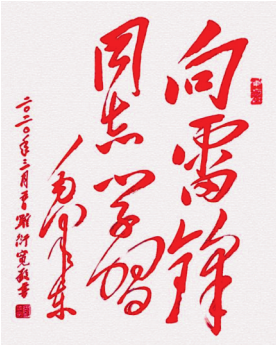 向雷锋
同志学习
毛泽东
二〇二〇年三月